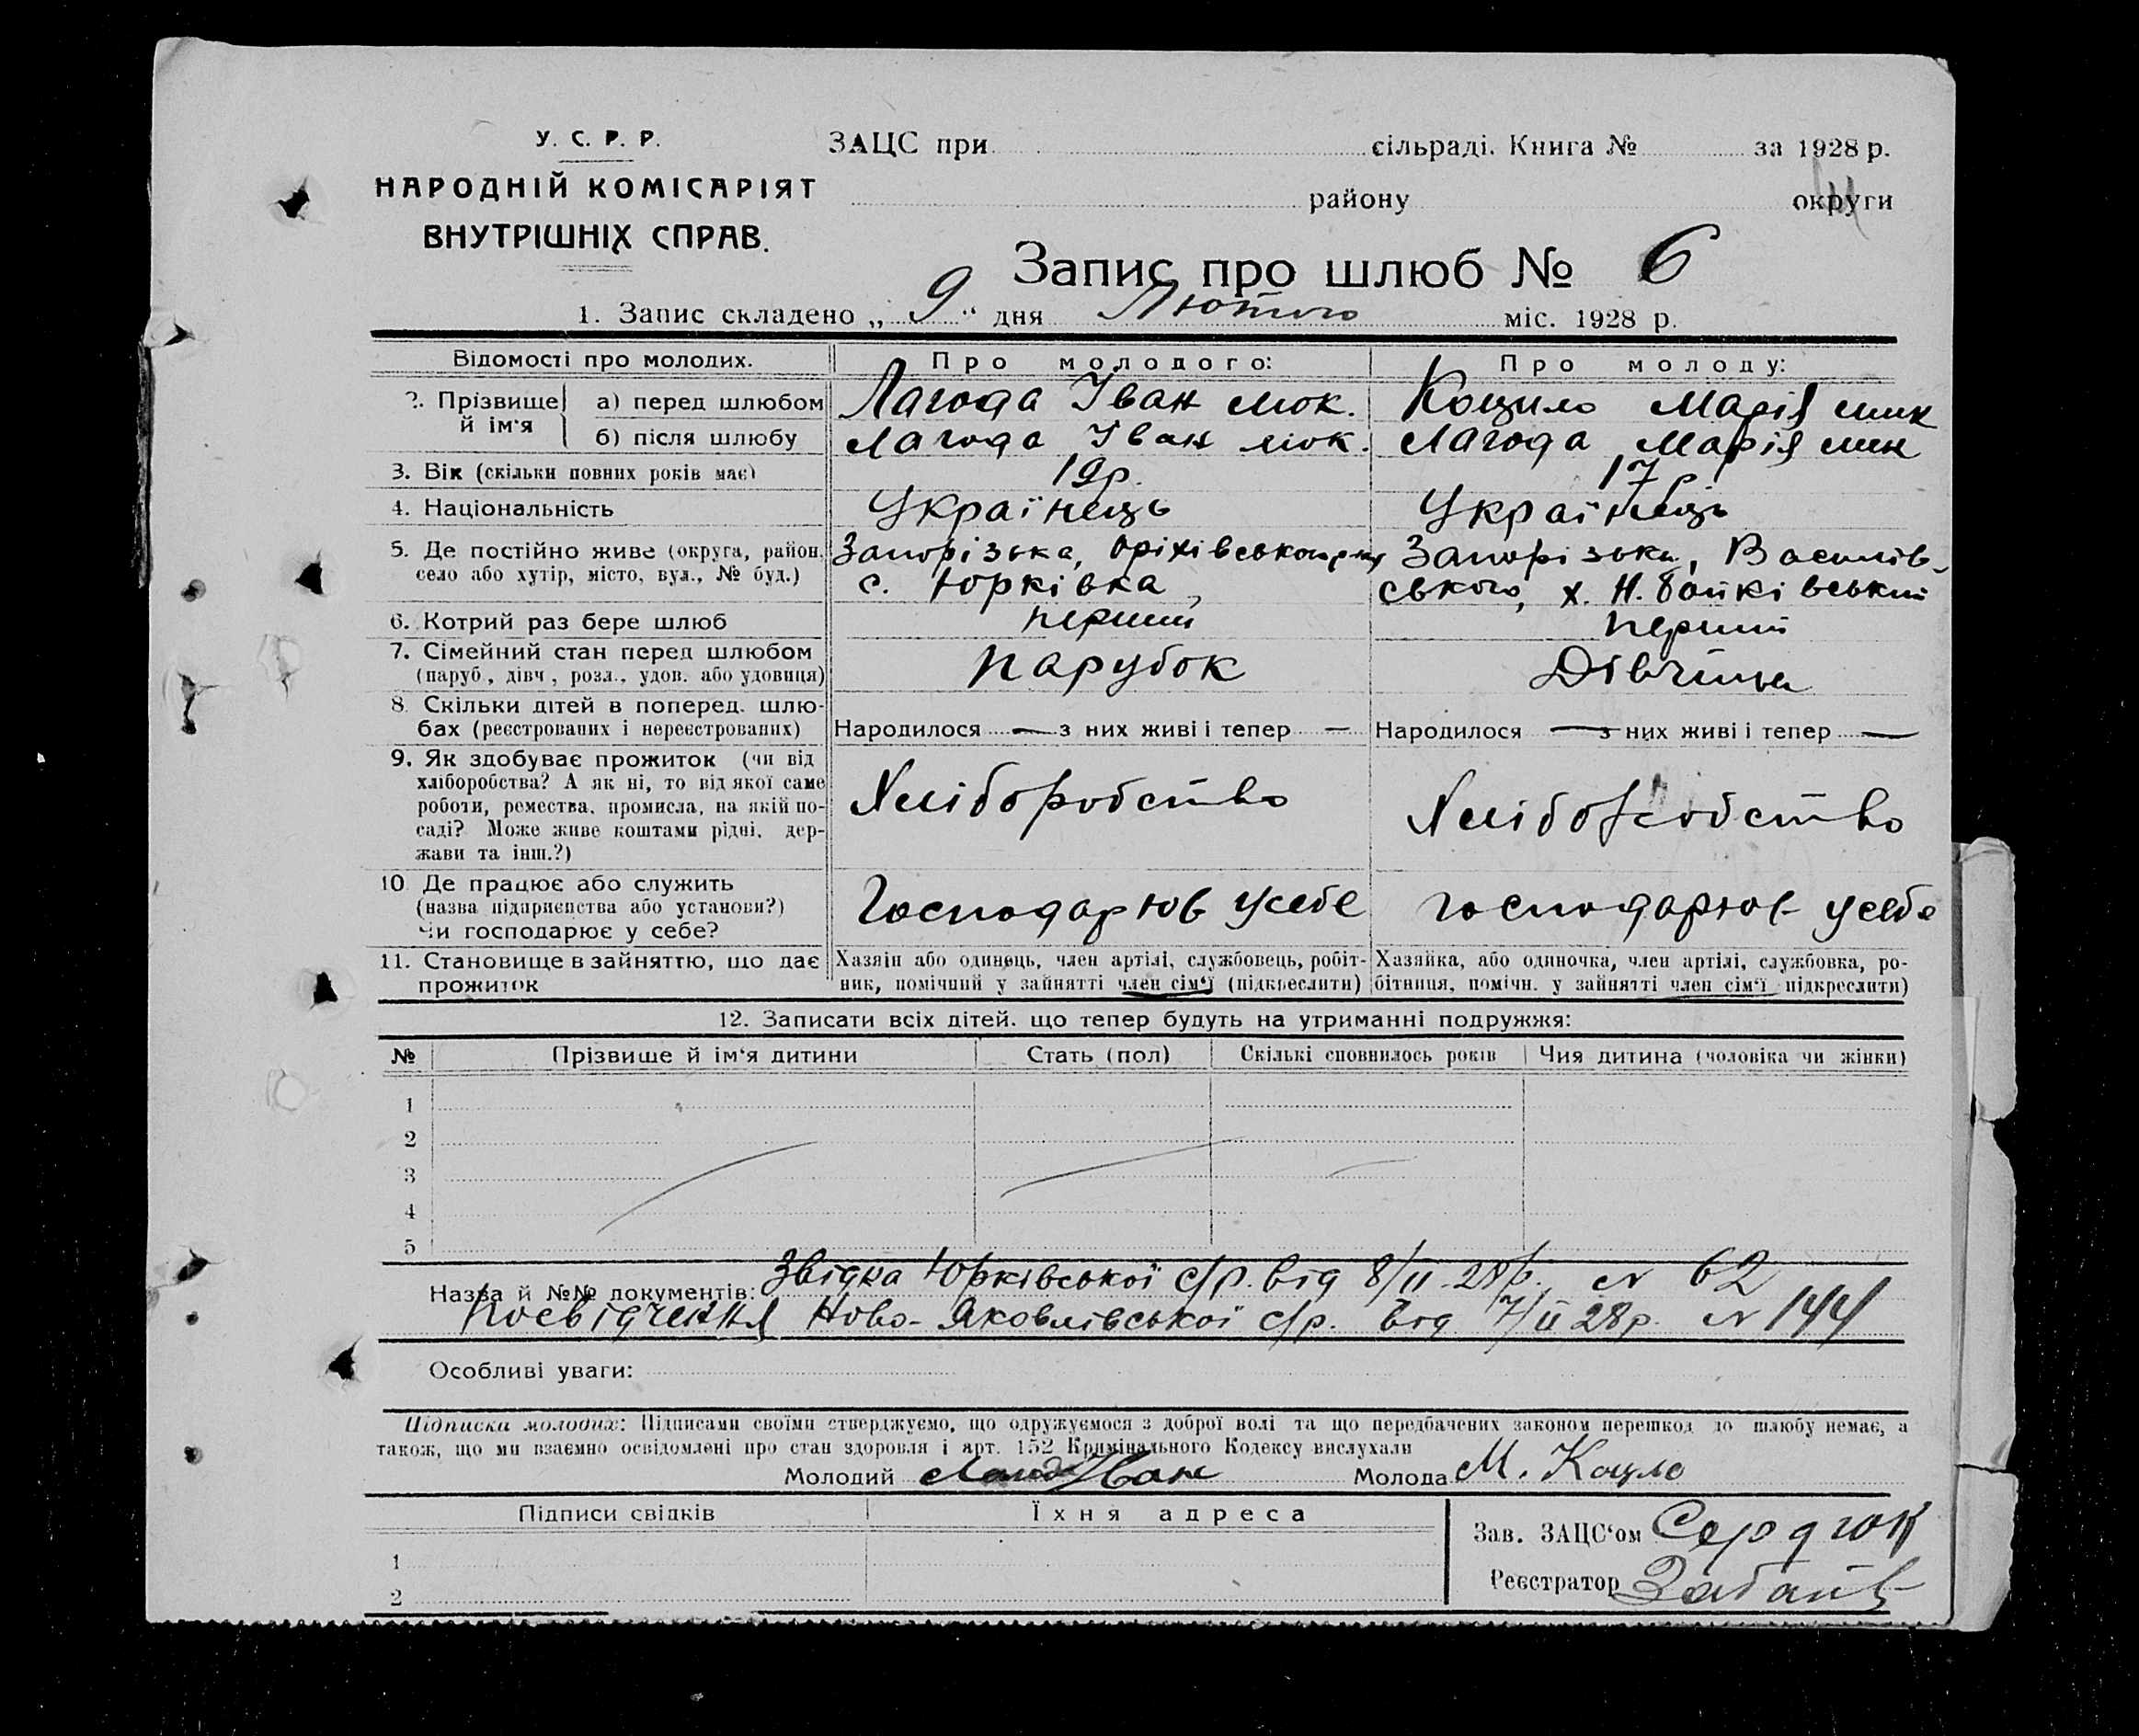 У. С. Р. Р.
НАРОДНІЙ КОМІСАРІЯТ
ВНУТРІШНІХ СПРАВ.
ЗАЦС при сільраді. Книга № за 1928 р.
району округи
Запис про шлюб № 6
1. Запис складено „ 9 “ дня Лютого міс. 1928 р.
Відомості про молодих. Про молодого: Про молоду:
2. Прізвище й ім‘я а) перед шлюбом Лагода Іван мок. Коцило Марія мик
б) після шлюбу Лагода Іван мок. Лагода Марія мик
3. Вік (скільки повних років має) 19р. 17 р
4. Національність Українець Українець
5. Де постійно живе (округа, район, Запорізька, Оріхівського Запорізька, Василів-
село або хутір, місто, вул., № буд.) с. Юрківка, ського, х. Н.
6. Котрий раз бере шлюб перший перший
7. Сімейний стан перед шлюбом парубок Дівчина
(паруб, дівч, розл., удов. або удовиця)
8. Скільки дітей в поперед. шлю-
бах (реєстрованих і нереєстрованих) Народилося — з них живі і тепер — Народилося — з них живі і тепер —
9. Як здобуває прожиток (чи від
хліборобства? А як ні, то від якої саме
роботи, ремества, промисла, на якій по- Хліборобство Хліборобство
саді? Може живе коштами рідні, дер-
жави та інш.?)
10 Де працює або служить
(назва підприємства або установи?) Господарює усебе господарює усебе
Чи господарює у себе?
11. Становище в зайняттю, що дає Хазяїн або одинець, член артілі, службовець, робіт- Хазяйка, або одиночка, член артілі, службовка, ро-
прожиток ник, помічний у зайнятті член сім‘ї (підкреслити) бітниця, помічн. у зайнятті член сім‘ї підкреслити)
12. Записати всіх дітей. що тепер будуть на утриманні подружжя:
№ Прізвище й ім‘я дитини Стать (пол) Скількі сповнилось років Чия дитина (чоловіка чи жінки)
1
2
3
4
5
Назва й №№ документів: Звідка Юрківської с/р. від 8/II-28р. N 62
Посвідчення Ново-Яковлівської с/р. від 7/II 28р. N 144
Особливі уваги:
Підписка молодих: Підписами своїми стверджуємо, що одружуємося з доброї волі та що передбачених законом перешкод до шлюбу немає, а
також, що ми взаємно освідомлені про стан здоровля і арт. 152 Кримінального Кодексу вислухали
Молодий Лагода Іван Молода М. Коцло
Підписи свідків Їхня адреса
Зав. ЗАЦС‘ом Сердюк
1
Реєстратор
2